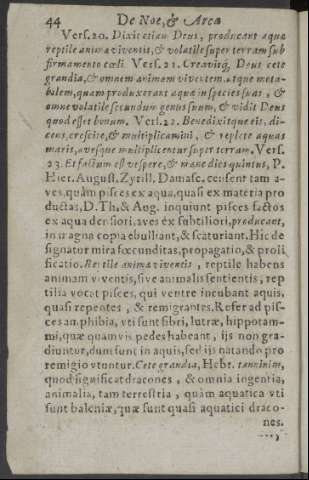 44 De Noe, & Arca
Vers. 20. Dixit etiam Deus, producant aquæ
reptile animæ viventis, & volatile super terram sub
firmamento cœli. Vers. 21. Creavitq́; Deus cete
grandia, & omnem animam viventem, atque mota-
bilem, quam produxerant aquæ in species suas, &
omne volatile secundum genus suum, & vidit Deus
quod esset bonum. Vers. 22. Benedixitque eis, di-
cens, crescite, & multiplicamini, & replete aquas
maris, avesque multiplicentur super terram. Vers.
23. Et factum est vespere, & mane dies quintus, P.
Hier. August. Zyrill. Damasc. censent tam a-
ves, quàm pisces ex aqua, quasi ex materia pro
ductas, D. Th. & Aug. inquiunt pisces factos
ex aqua densiori, aves éx subtiliori, producant,
in magna copia ebulliant, & scaturiant. Hic de
signatur mira fœcunditas, propagatio, & proli
ficatio. Reptile animæ viventis, reptile habens
animam viventis, sive animalis sentientis, rep
tilia vocat pisces, qui ventre incubant aquis,
quasi repentes, & remigrantes. Refer ad pis-
ces amphibia, vti sunt fibri, lutræ, hippotam-
mi, quæ quamvis pedes habeant, ijs non gra-
diuntur, dum sunt in aquis, sed ijs natando pro
remigio vtuntur. Cete grandia, Hebr. tanninim,
quod significat dracones, & omnia ingentia,
animalia, tam terrestria, quàm aquatica vti
sunt baleniæ, quæ sunt quasi aquatici draco-
nes.